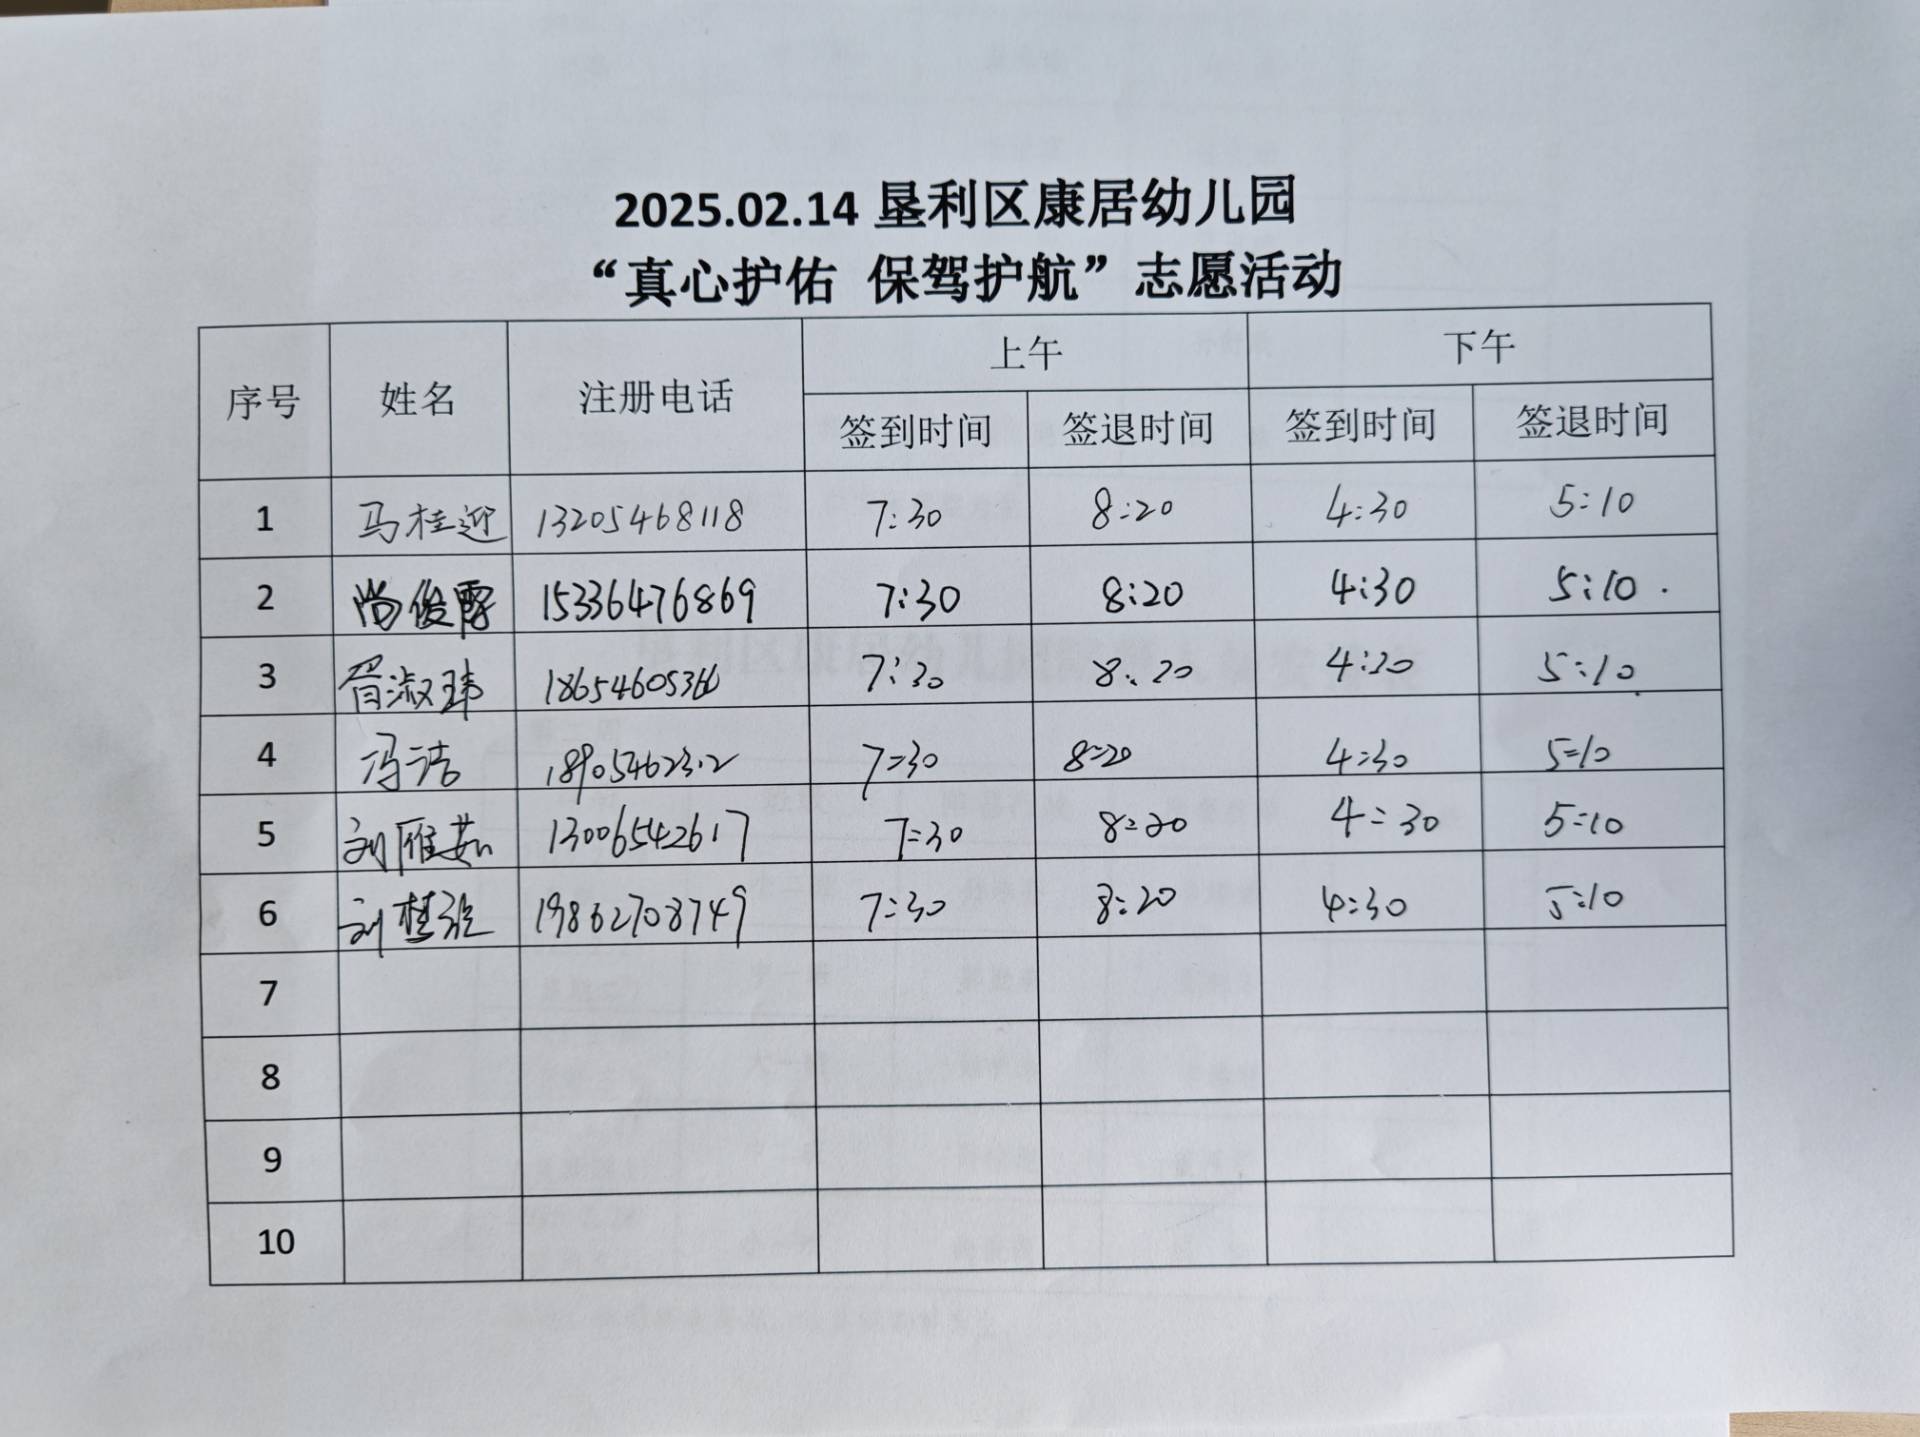 2025.02.14 垦利区康居幼儿园
“真心护佑 保驾护航”志愿活动
序号 姓名 注册电话 上午 下午
签到时间 签退时间 签到时间 签退时间
1 马桂迎 13205468118 7:30 8:20 4:30 5:10
2 尚俊霞 15336476869 7:30 8:20 4:30 5:10
3 胥淑玮 7:30 8:20 4:30 5:10
4 冯洁 18905462312 7:30 8:20 4:30 5:10
5 刘雁茹 13006542617 7:30 8:20 4:30 5:10
6 刘 19862708749 7:30 8:20 4:30 5:10
7
8
9
10